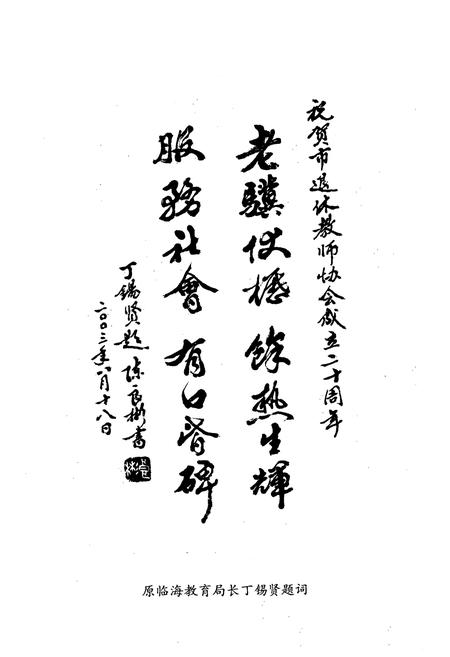 祝贺市退休教师协会成立二十周年
老驥伏櫪 餘热生輝
服務社會 有口皆碑
丁锡贤题 陈良彬書
二〇〇三年八月十八日
原临海教育局长丁锡贤题词